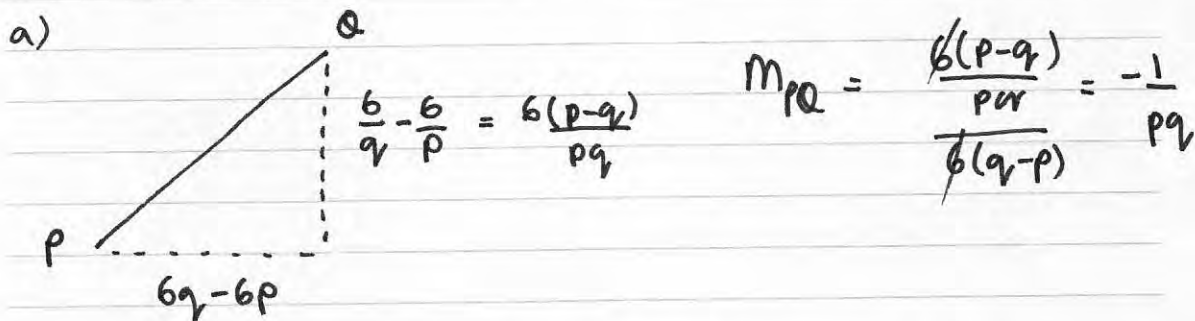 a)
Q
6/q - 6/p = 6(p-q)/pq
P
6q-6p
M_PQ = (6(p-q)/pq)/(6(q-p)) = -1/pq